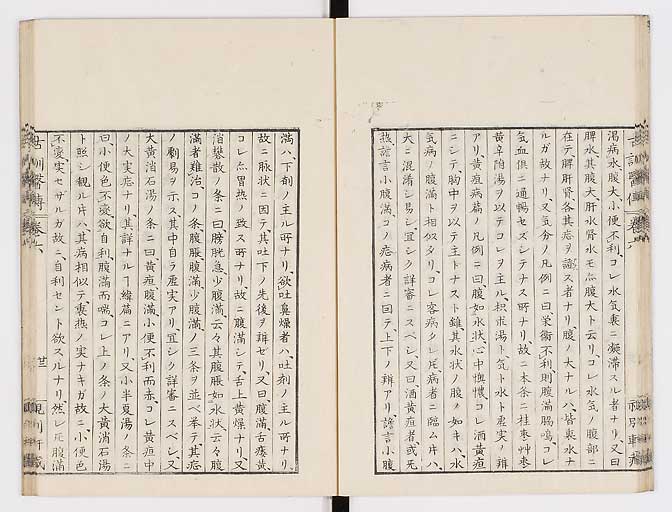 渇病水腹大小便不利コレ水気裏ニ凝滞スル者ナリ又曰
脾水其腹大肝水腎水モ亦腹大ト云リコレ水気ノ腹部ニ
在テ脾肝腎各其症ヲ　ス者ナリ腹ノ大ナルハ皆裏水ナ
ルガ故ナリ又気分ノ凡例ニ曰栄衛不利則腹満腸鳴コレ
気血倶ニ通暢セズシテナス所ナリ故ニ本条ニ桂枣艸枣
黄辛附湯ヲ以テコレヲ主ル枳朮湯ト気ト水ト虚実ノ辨
アリ黄疸病篇ノ凡例ニ曰腹如水状心中懊憹コレ酒黄疸
ニシテ胸中ヲ以テ主トナスト雖其水状ノ腹ノ如キハ水
気病ノ腹満ト相似タリコレ客病タレ𪜈病者ニ臨ム片ハ
大ニ混淆シ易シ宜シク詳審ニスベシ又曰酒黄疸者或无
熱譫言小腹満コノ症病者ニ因テ上下ノ辨アリ譫言小腹
満ハ下剤ノ主ル所ナリ欲吐鼻燥者ハ吐剤ノ主ル所ナリ
故ニ脉状ニ因テ其吐下ノ先後ヲ辨ゼリ又曰腹満舌痿黄
コレ亦胃熱ノ致ス所ナリ故ニ腹満シテ舌上黄燥ナリ又
消礬散ノ条ニ曰膀胱急少腹満云々其腹脹如水状云々腹
満者難治コノ条腹脹腹満少腹満ノ三条ヲ並ベ挙テ其症
ノ劇易ヲ示ス其中自ラ虚実アリ宜シク詳審ニスベシ又
大黄消石湯ノ条ニ曰黄疸腹満小便不利而赤コレ黄疸中
ノ大実症ナリ其詳ナルヿ緯篇ニアリ又小半夏湯ノ条ニ
曰小便色不変欲自利腹満而喘コレ上ノ条ノ大黄消石湯
ト照シ観ル片ハ其病相似テ裏熱ノ実ナキガ故ニ小便色
不変実セザルガ故ニ自利セント欲スルナリ然レ𪜈腹満